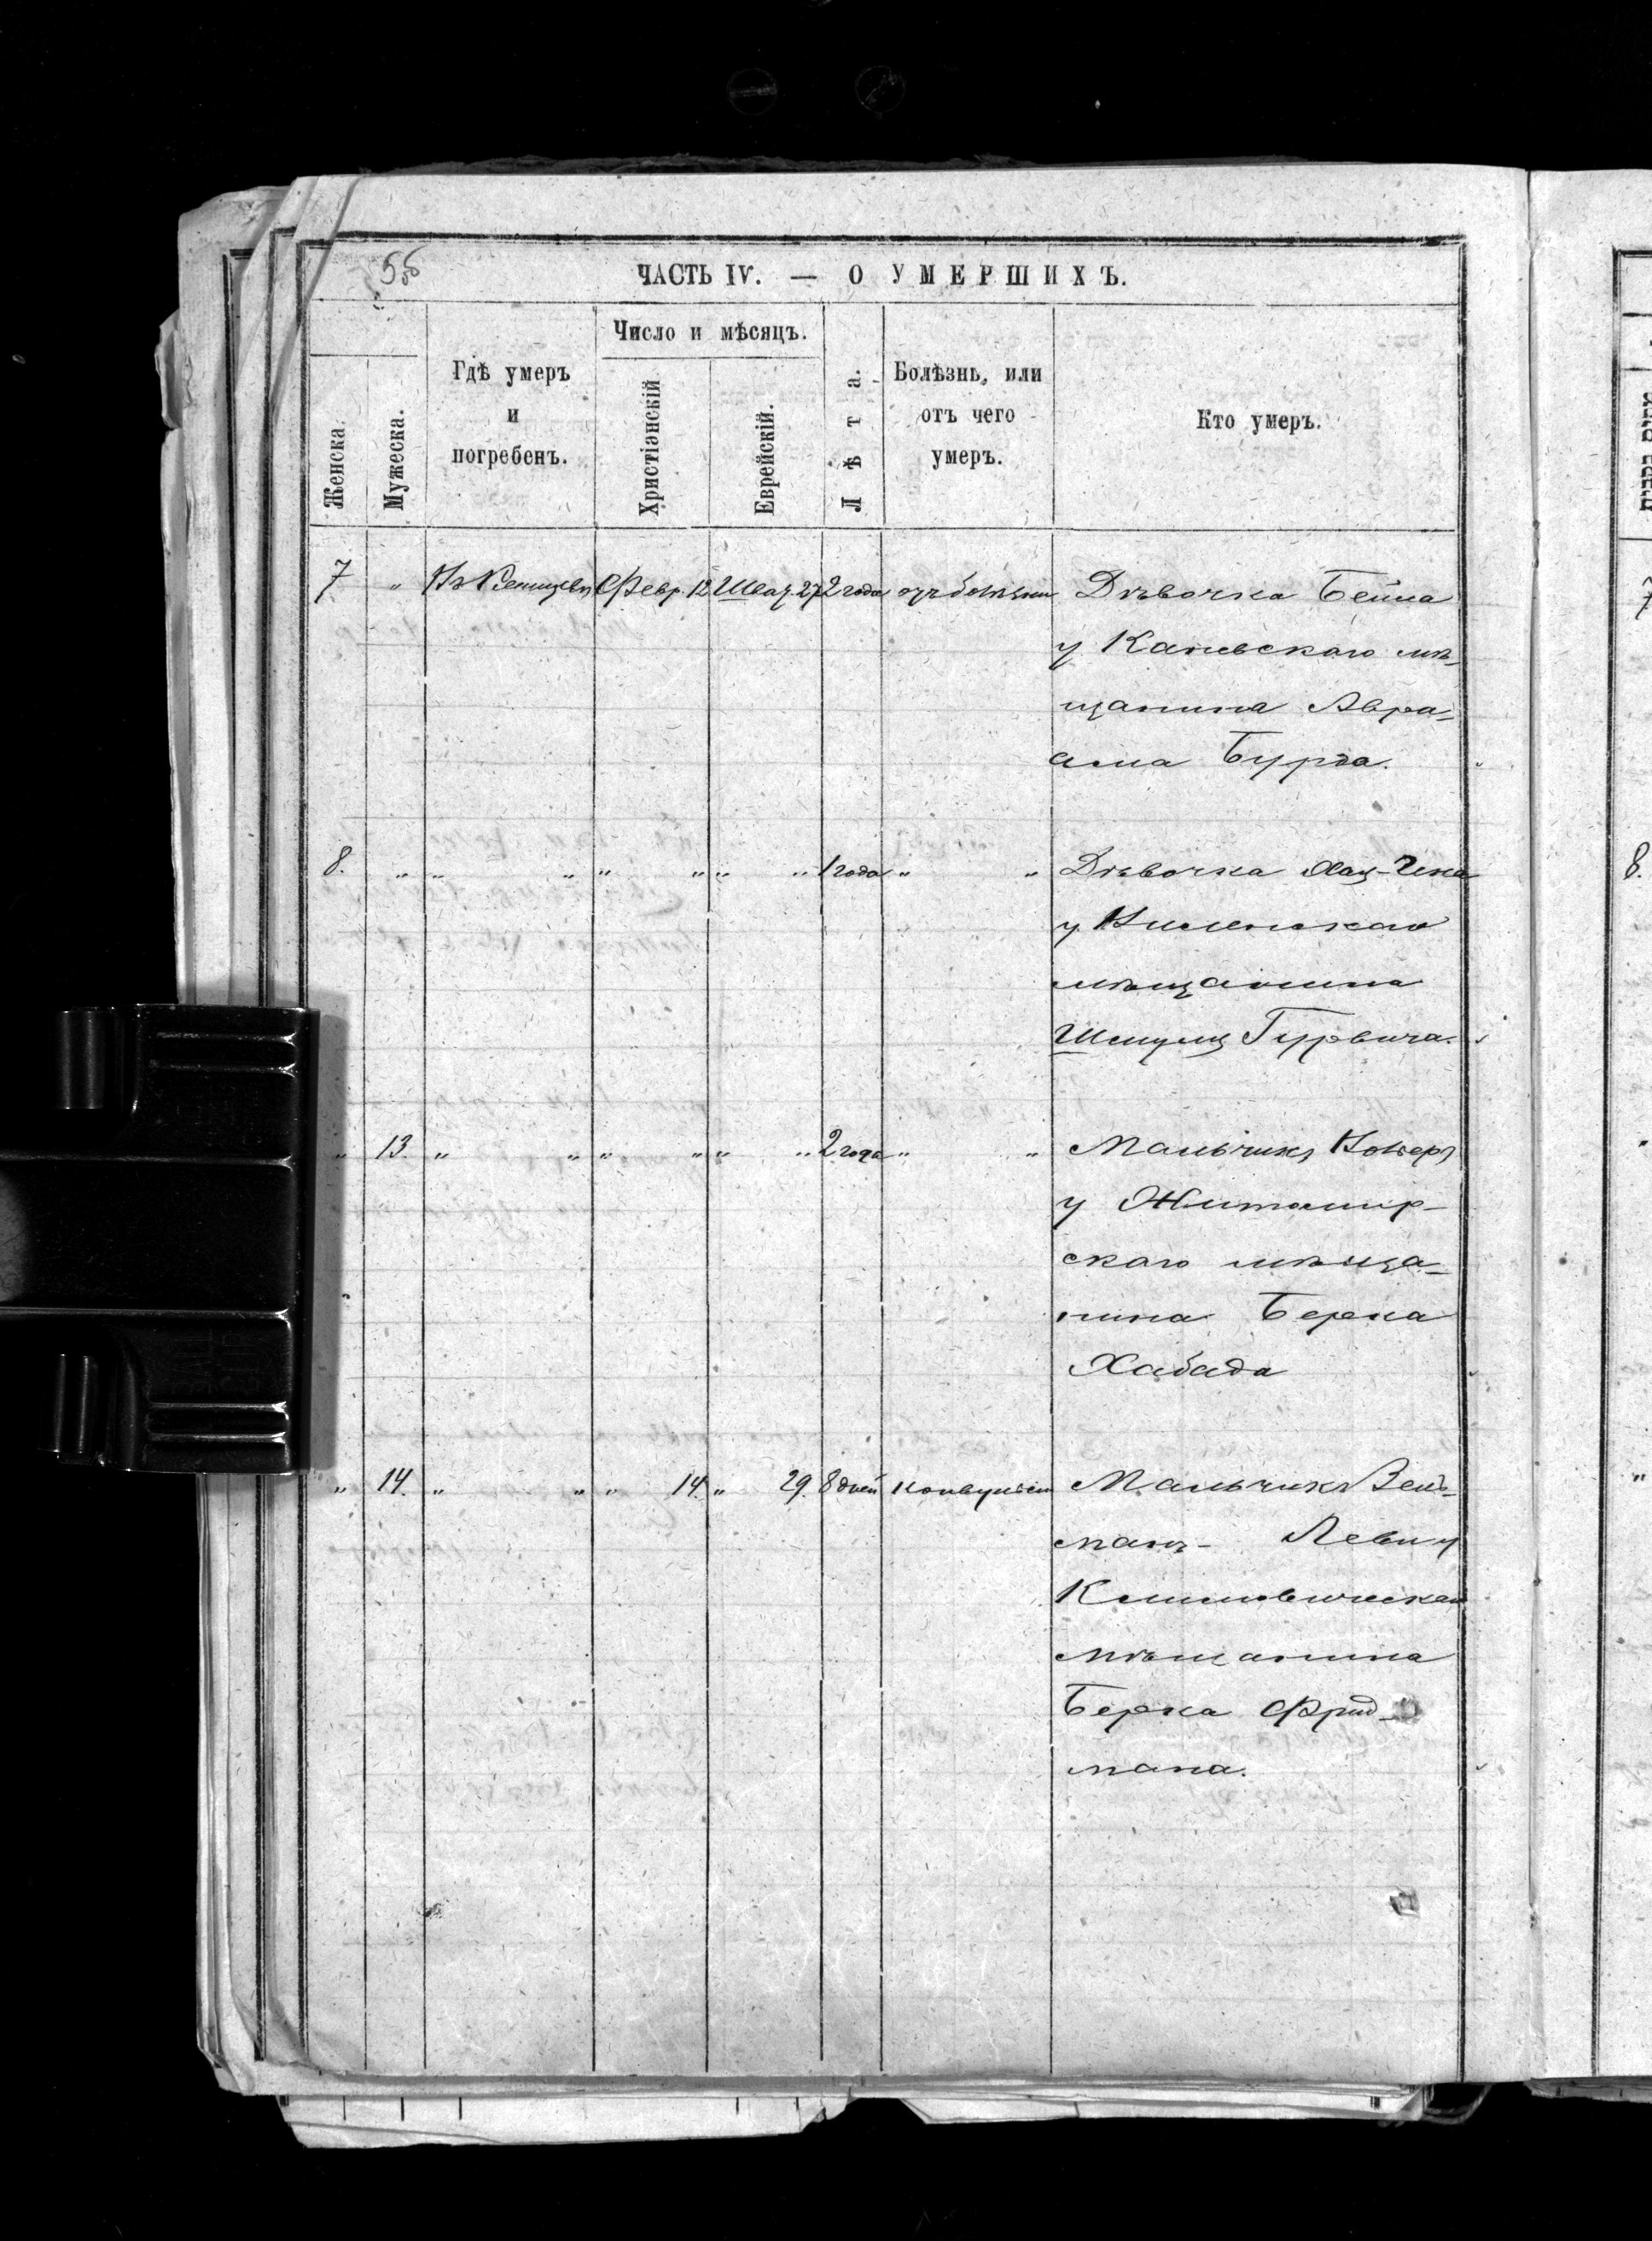 55
ЧАСТЬ IV. — О УМЕРШИХЪ.
Женска.
Мужеска.
Гдѣ умеръ
и
погребенъ.
Число и мѣсяцъ.
Христіанскій
Еврейскій.
Лѣта.
Болѣзнь, или
отъ чего
умеръ.
Кто умеръ.
7 " Февр. 12 Шват. 27 2 года Дѣвочка Бейла
у Каневскаго мѣ-
щанина Авра-
ама Бурда.
8. " " " " " " " 1 года " " Дѣвочка
у Виленскаго
мѣщанина
Шмуля Гурвича.
" 13. " " " " " " 2 года " " Мальчикъ
у Житомир-
скаго мѣща-
нина Берка
Хабада
" 14. " " " 14. " 29. 8 дней конвульсіи Мальчикъ Зель-
манъ- Левъ у
Климовическаго
мѣщанина
Берка Фрид-
мана.
7
8.
"
"